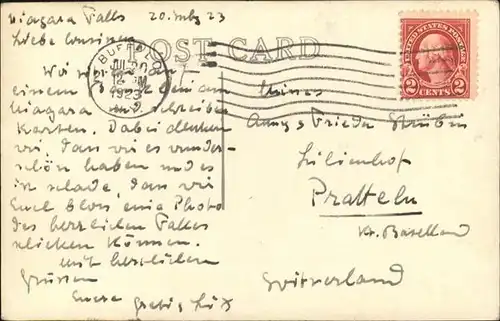 Niagara Falls 20. July 23
Liebe Cousinen
POST CARD
BUFFALO
JUL 20
12 M
1923
N.Y.
UNITED STATES POSTAGE
2 CENTS 2
Wir
einem
Niagara und schreiben
Karten. Dabei denken
wir, dass wir es wunder-
schön haben und es
ist schade, dass wir
Euch bloss eine Photo
des herrlichen Falles
schicken können.
mit herzlichen
Grüssen
Eure
Annys Frieda Strübin
Lilienhof
Pratteln
Kt. Baselland
Switzerland